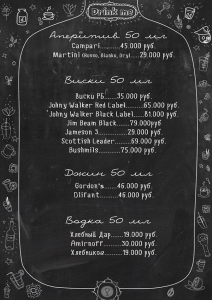 Drink me
Аперитив 50 мл
Campari..........45.000 руб.
Martini (Rosso, Bianko, Dry)....29.000 руб.
Виски 50 мл
Виски РБ.....35.000 руб.
Johny Walker Red Label.......65.000 руб.
Johny Walker Black Label.....81.000 руб.
Jim Beam Black......79.000руб
Jameson 3.........29.000 руб.
Scottish Leader........69.000 руб.
Bushmills........75.000 руб.
Джин 50 мл
Gordon's.....46.000 руб.
Olifant......46.000 руб.
Водка 50 мл
Хлебный Дар......19.000 руб.
Amirnoff.......30.000 руб.
Хлебников......19.000 руб.